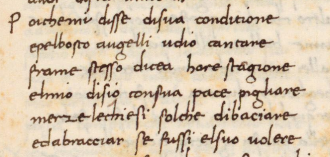 P oi chemi disse disua conditione
epelbosco augelli udio cantare
frame stesso dicea hor e stagione
elmio disio consua pace pigliare
merze lechiesi solche dibaciare
edabracciar se fussi elsuo volere